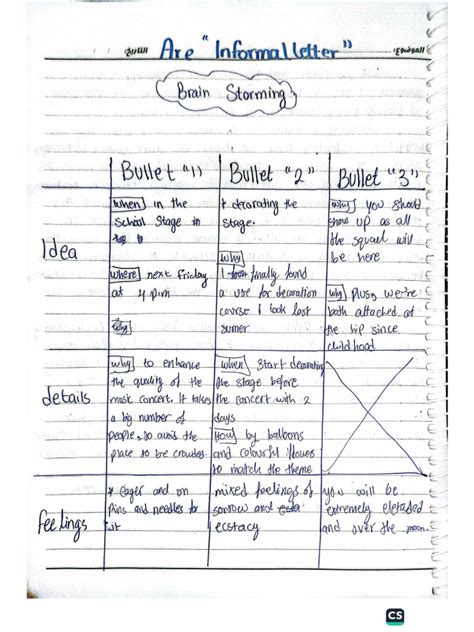 Are "Informal letter"
Brain Storming
Bullet "1)
Bullet "2"
Bullet "3")
Idea
when in the
School Stage in
where next Friday
at 4 p.m
why
+ decorating the
stage.
why
I finally found
a use for decoration
course I took last
sumer
why you should
show up as all
the squad will
be here
why Plus, we're
both attached at
the hip since
childhood
details
why to enhance
the quality of the
music concert. It takes
a big number of
people, so avoid the
place to be crowded
when start decorating
the stage before
the concert with 2
days
How by balloons
and colourful
to match the theme
feelings
* Eager and on
Pins and needles for
it
mixed feelings of
sorrow and
ecstacy
you will be
extremely elated
and over the moon.
CS